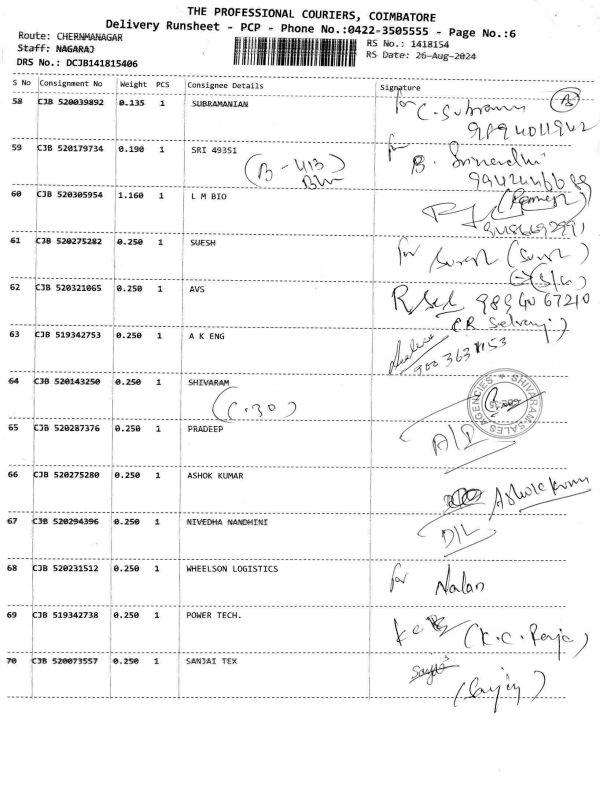 THE PROFESSIONAL COURIERS, COIMBATORE
Delivery Runsheet - PCP - Phone No.:0422-3505555 - Page No.:6
Route: CHERNMANAGAR
Staff: NAGARAJ
DRS No.: DCJB141815406
RS No.: 1418154
RS Date: 26-Aug-2024
S No Consignment No Weight PCS Consignee Details Signature
58 CJB 520039892 0.135 1 SUBRAMANIAN for C. Subramani
59 CJB 520179734 0.190 1 SRI 49351 for B.
(B - 413)
60 CJB 520305954 1.160 1 L M BIO (Ramesh)
61 CJB 520275282 0.250 1 SUESH for Suresh
62 CJB 520321065 0.250 1 AVS 98940 67210
(R Selvaraj)
63 CJB 519342753 0.250 1 A K ENG
64 CJB 520143250 0.250 1 SHIVARAM SHIVARAM SALES AGENCIES
(C-30)
65 CJB 520287376 0.250 1 PRADEEP A/D
66 CJB 520275280 0.250 1 ASHOK KUMAR Ashok kumar
67 CJB 520294396 0.250 1 NIVEDHA NANDHINI D/L
68 CJB 520231512 0.250 1 WHEELSON LOGISTICS for Nalan
69 CJB 519342738 0.250 1 POWER TECH. (K.C. Raja)
70 CJB 520073557 0.250 1 SANJAI TEX
(Sanjay)